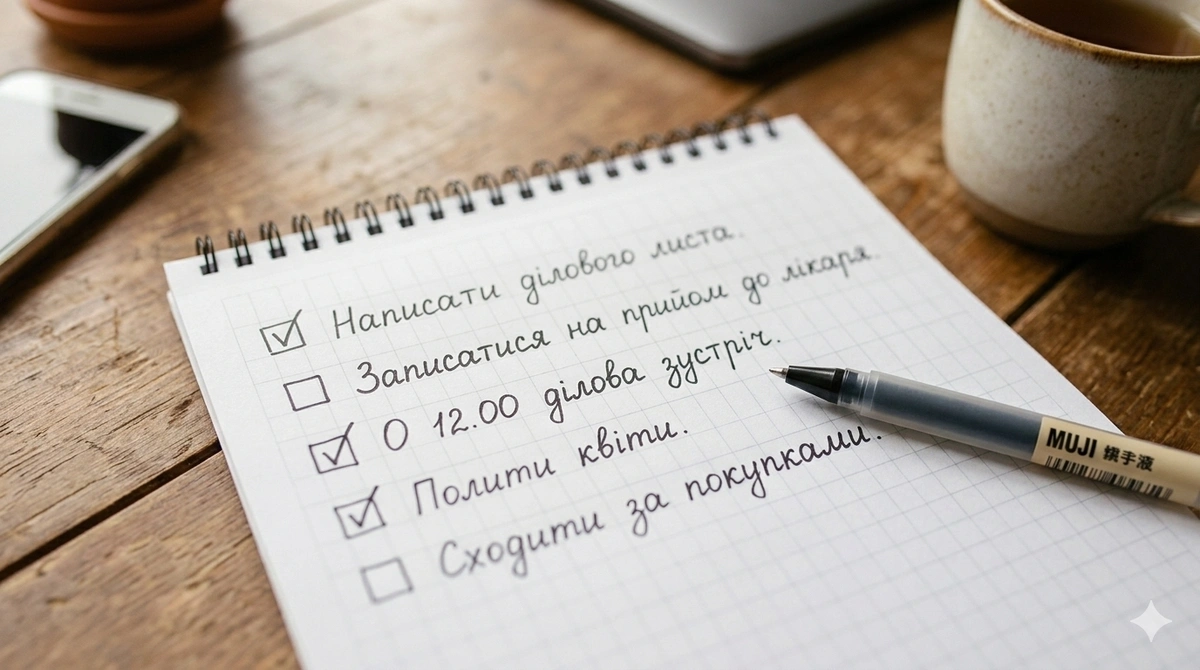 Написати ділового листа.
Записатися на прийом до лікаря.
О 12.00 ділова зустріч.
Полити квіти.
Сходити за покупками.
MUJI